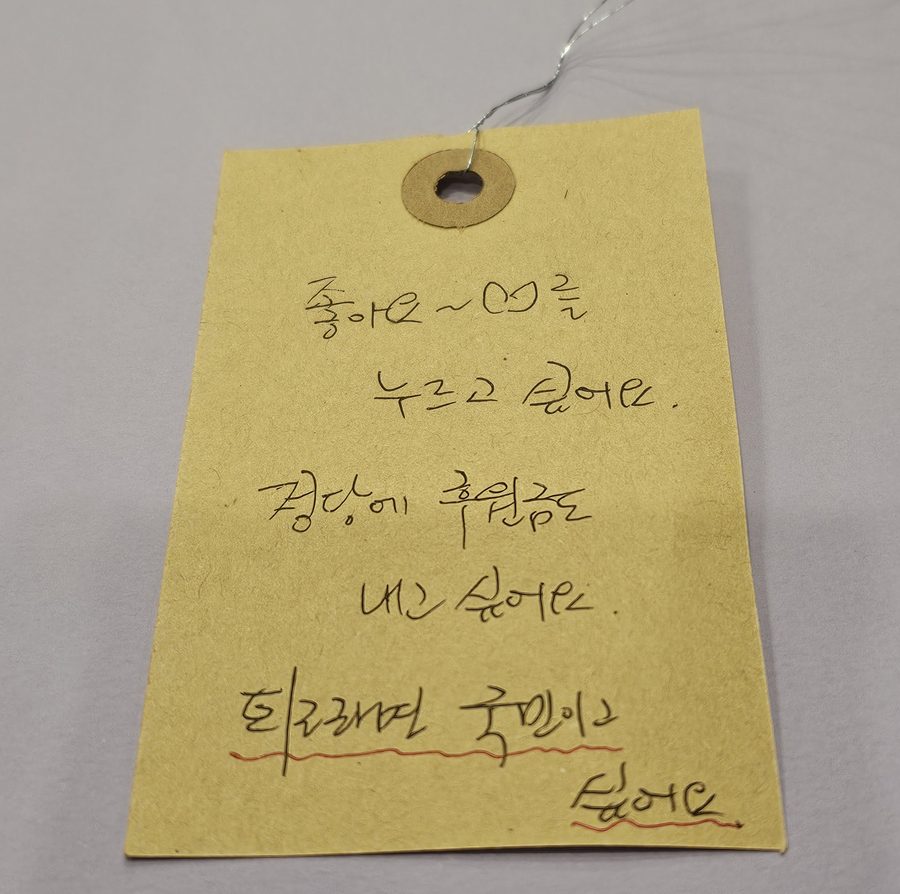 좋아요~♡를
누르고 싶어요.
정당에 후원금도
내고 싶어요.
퇴근하면 국민이고
싶어요.